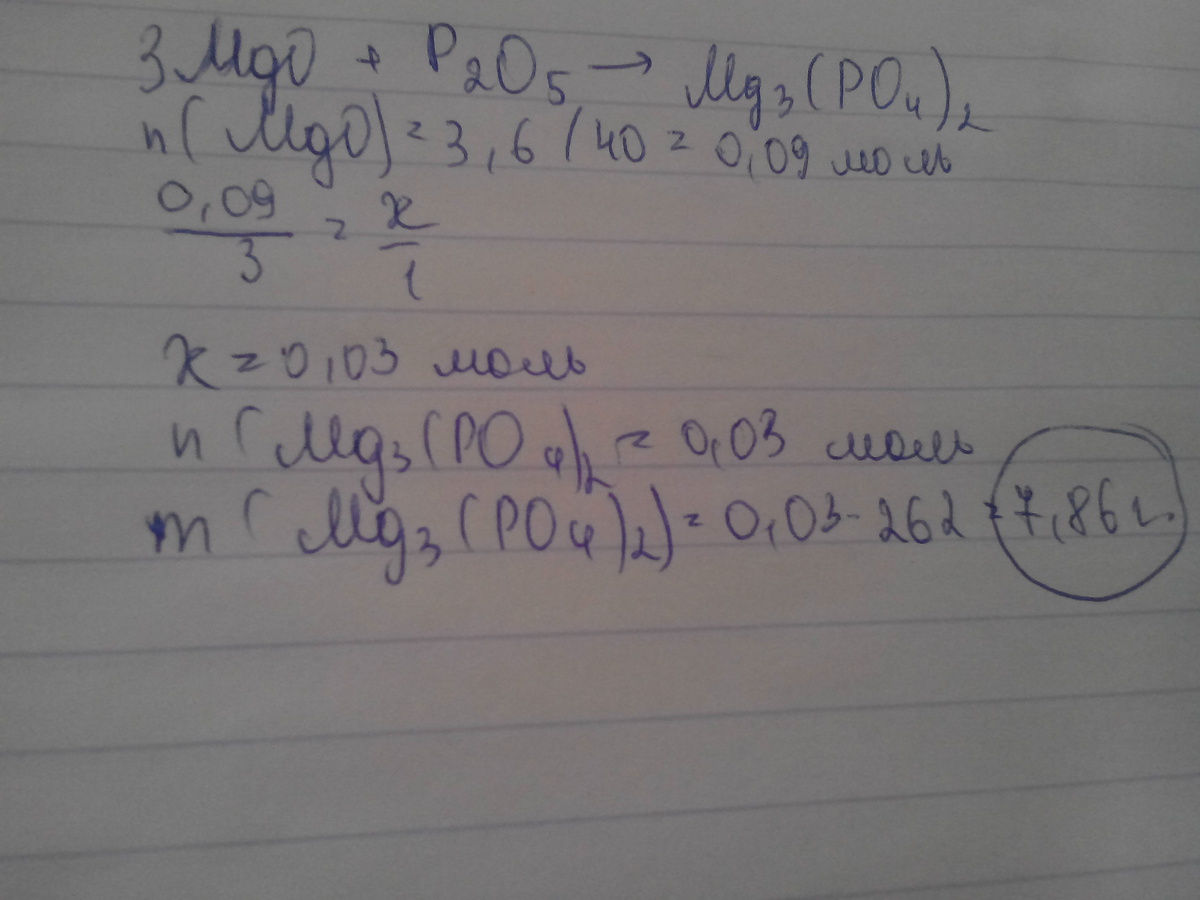 3MgO + P₂O₅ → Mg₃(PO₄)₂
n(MgO) = 3,6 / 40 = 0,09 моль
0,09/3 = x/1
x = 0,03 моль
n(Mg₃(PO₄)₂ = 0,03 моль
m(Mg₃(PO₄)₂) = 0,03 · 262 = 7,86 г.